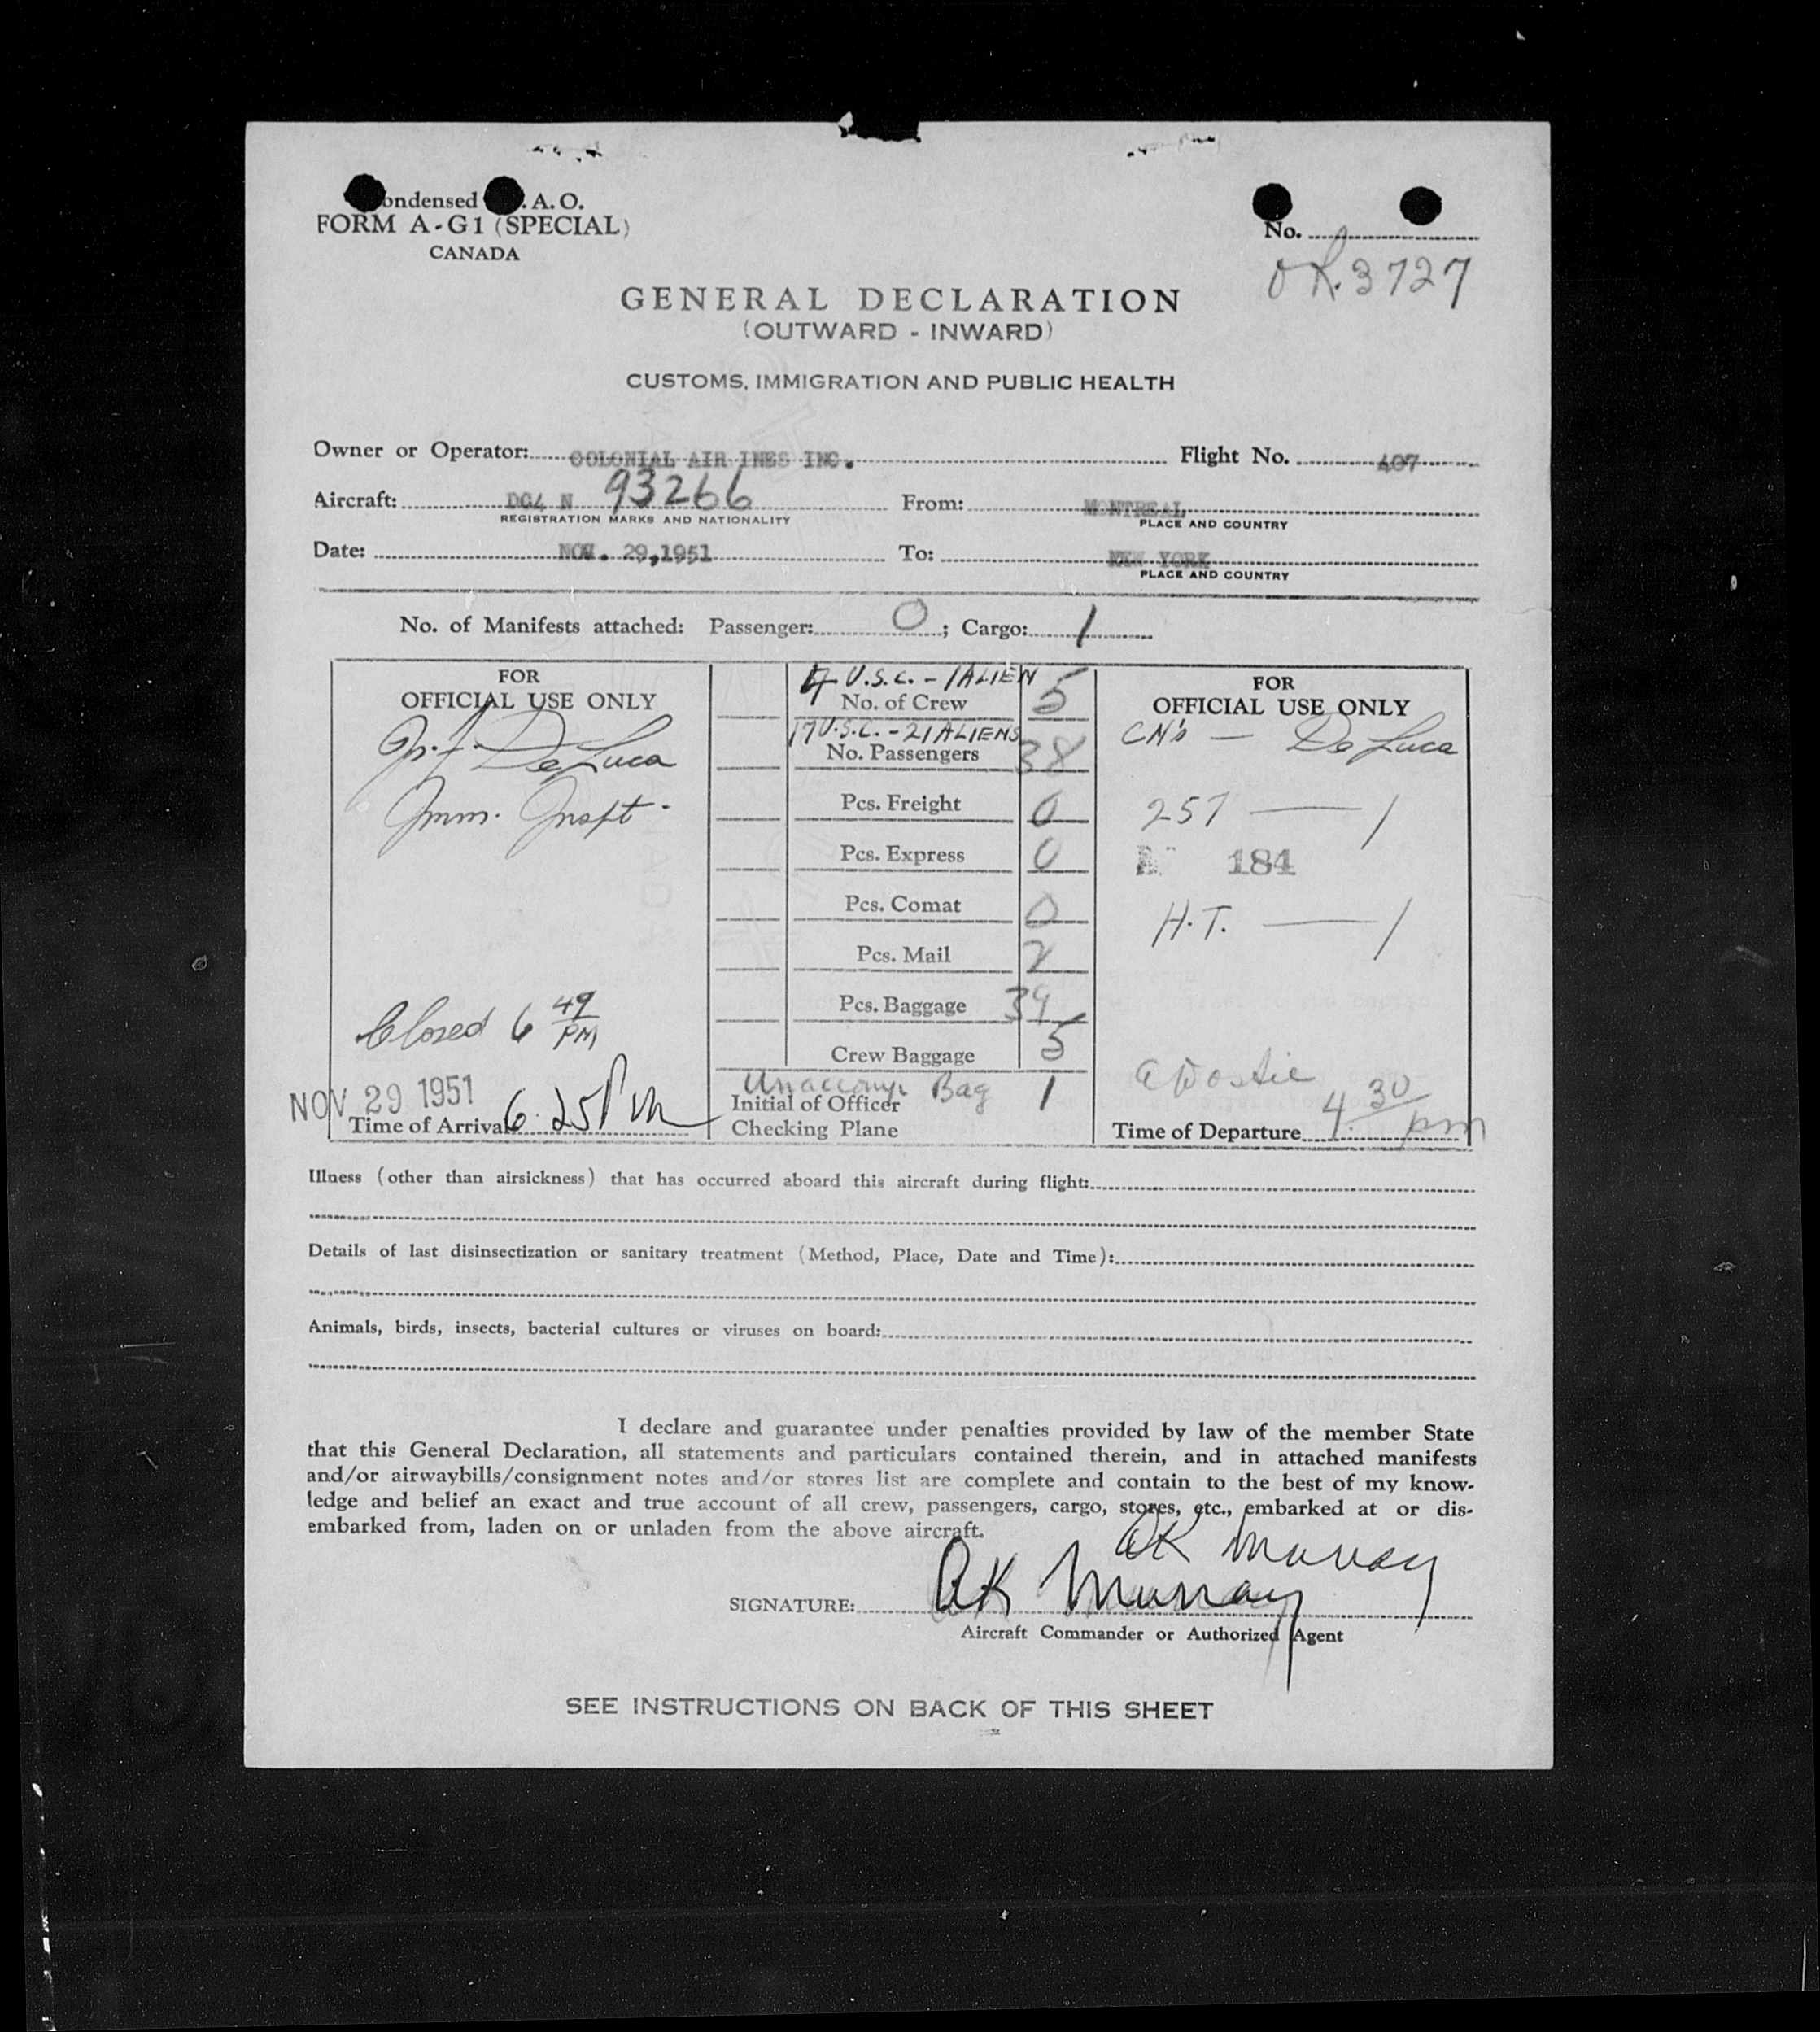 ondensed .A.O.
FORM A-G1 (SPECIAL)
CANADA
No.
OK. 3727
GENERAL DECLARATION
(OUTWARD - INWARD)
CUSTOMS, IMMIGRATION AND PUBLIC HEALTH
Owner or Operator: COLONIAL AIR INES INC. Flight No. 407
Aircraft: DC4 N 93266 From: MONTREAL
REGISTRATION MARKS AND NATIONALITY PLACE AND COUNTRY
Date: NOV. 29,1951 To: NEW YORK
PLACE AND COUNTRY
No. of Manifests attached: Passenger: 0; Cargo: 1
FOR
OFFICIAL USE ONLY
De Luca
Imm. Inspt.
Closed 6 49 PM
NOV 29 1951
Time of Arrival 6.25 PM
4 U.S.C. - 1 ALIEN
No. of Crew 5
17 U.S.C. - 21 ALIENS
No. Passengers 38
Pcs. Freight 0
Pcs. Express 0
Pcs. Comat 0
Pcs. Mail 2
Pcs. Baggage 39
Crew Baggage 5
Unaccomp. Bag 1
Initial of Officer
Checking Plane
FOR
OFFICIAL USE ONLY
CN's — De Luca
257 — 1
184
H.T. — 1
Time of Departure 4.30 pm
Illness (other than airsickness) that has occurred aboard this aircraft during flight:
Details of last disinsectization or sanitary treatment (Method, Place, Date and Time):
Animals, birds, insects, bacterial cultures or viruses on board:
I declare and guarantee under penalties provided by law of the member State
that this General Declaration, all statements and particulars contained therein, and in attached manifests
and/or airwaybills/consignment notes and/or stores list are complete and contain to the best of my know-
ledge and belief an exact and true account of all crew, passengers, cargo, stores, etc., embarked at or dis-
embarked from, laden on or unladen from the above aircraft.
AK Murray
SIGNATURE: AK Murray
Aircraft Commander or Authorized Agent
SEE INSTRUCTIONS ON BACK OF THIS SHEET